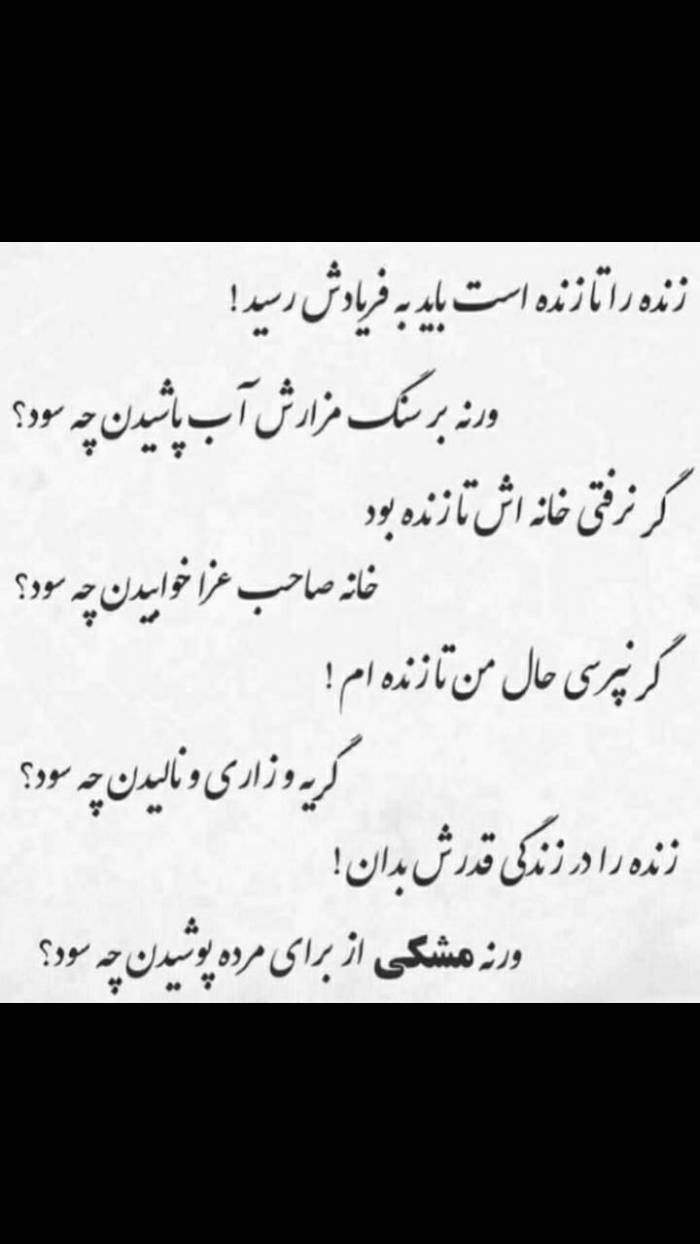 زنده را تا زنده است باید به فریادش رسید!
ورنه بر سنگ مزارش آب پاشیدن چه سود؟
گر نرفتی خانه اش تا زنده بود
خانه صاحب عزا خوابیدن چه سود؟
گر نپرسی حال من تا زنده ام!
گریه و زاری و نالیدن چه سود؟
زنده را در زندگی قدرش بدان!
ورنه مشکی از برای مرده پوشیدن چه سود؟